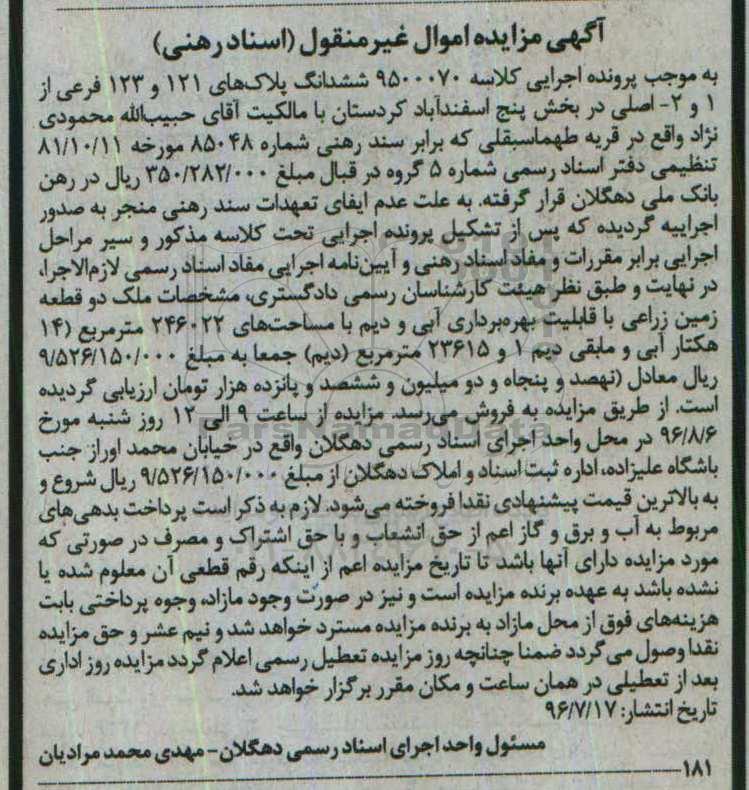 آگهی مزایده اموال غیرمنقول (اسناد رهنی)
به موجب پرونده اجرایی کلاسه ۹۵۰۰۰۷۰ ششدانگ پلاک‌های ۱۲۱ و ۱۲۳ فرعی از
۱ و ۲- اصلی در بخش پنج اسفندآباد کردستان با مالکیت آقای حبیب‌الله محمودی
نژاد واقع در قریه طهماسبقلی که برابر سند رهنی شماره ۸۵۰۴۸ مورخه ۸۱/۱۰/۱۱
تنظیمی دفتر اسناد رسمی شماره ۵ گروه در قبال مبلغ ۳۵۰/۲۸۲/۰۰۰ ریال در رهن
بانک ملی دهگلان قرار گرفته. به علت عدم ایفای تعهدات سند رهنی منجر به صدور
اجراییه گردیده که پس از تشکیل پرونده اجرایی تحت کلاسه مذکور و سیر مراحل
اجرایی برابر مقررات و مفاد اسناد رهنی و آیین‌نامه اجرایی مفاد اسناد رسمی لازم‌الاجرا،
در نهایت و طبق نظر هیئت کارشناسان رسمی دادگستری، مشخصات ملک دو قطعه
زمین زراعی با قابلیت بهره‌برداری آبی و دیم با مساحت‌های ۲۴۶۰۲۲ مترمربع (۱۴
هکتار آبی و مابقی دیم ۱ و ۲۳۶۱۵ مترمربع (دیم) جمعا به مبلغ ۹/۵۲۶/۱۵۰/۰۰۰
ریال معادل (نهصد و پنجاه و دو میلیون و ششصد و پانزده هزار تومان ارزیابی گردیده
است. از طریق مزایده به فروش می‌رسد. مزایده از ساعت ۹ الی ۱۲ روز شنبه مورخ
۹۶/۸/۶ در محل واحد اجرای اسناد رسمی دهگلان واقع در خیابان محمد اوراز جنب
باشگاه علیزاده، اداره ثبت اسناد و املاک دهگلان از مبلغ ۹/۵۲۶/۱۵۰/۰۰۰ ریال شروع و
به بالاترین قیمت پیشنهادی نقدا فروخته می‌شود. لازم به ذکر است پرداخت بدهی‌های
مربوط به آب و برق و گاز اعم از حق انشعاب و یا حق اشتراک و مصرف در صورتی که
مورد مزایده دارای آنها باشد تا تاریخ مزایده اعم از اینکه رقم قطعی آن معلوم شده یا
نشده باشد به عهده برنده مزایده است و نیز در صورت وجود مازاد، وجوه پرداختی بابت
هزینه‌های فوق از محل مازاد به برنده مزایده مسترد خواهد شد و نیم عشر و حق مزایده
نقدا وصول می گردد ضمنا چنانچه روز مزایده تعطیل رسمی اعلام گردد مزایده روز اداری
بعد از تعطیلی در همان ساعت و مکان مقرر برگزار خواهد شد.
تاریخ انتشار: ۹۶/۷/۱۷
مسئول واحد اجرای اسناد رسمی دهگلان- مهدی محمد مرادیان
۱۸۱